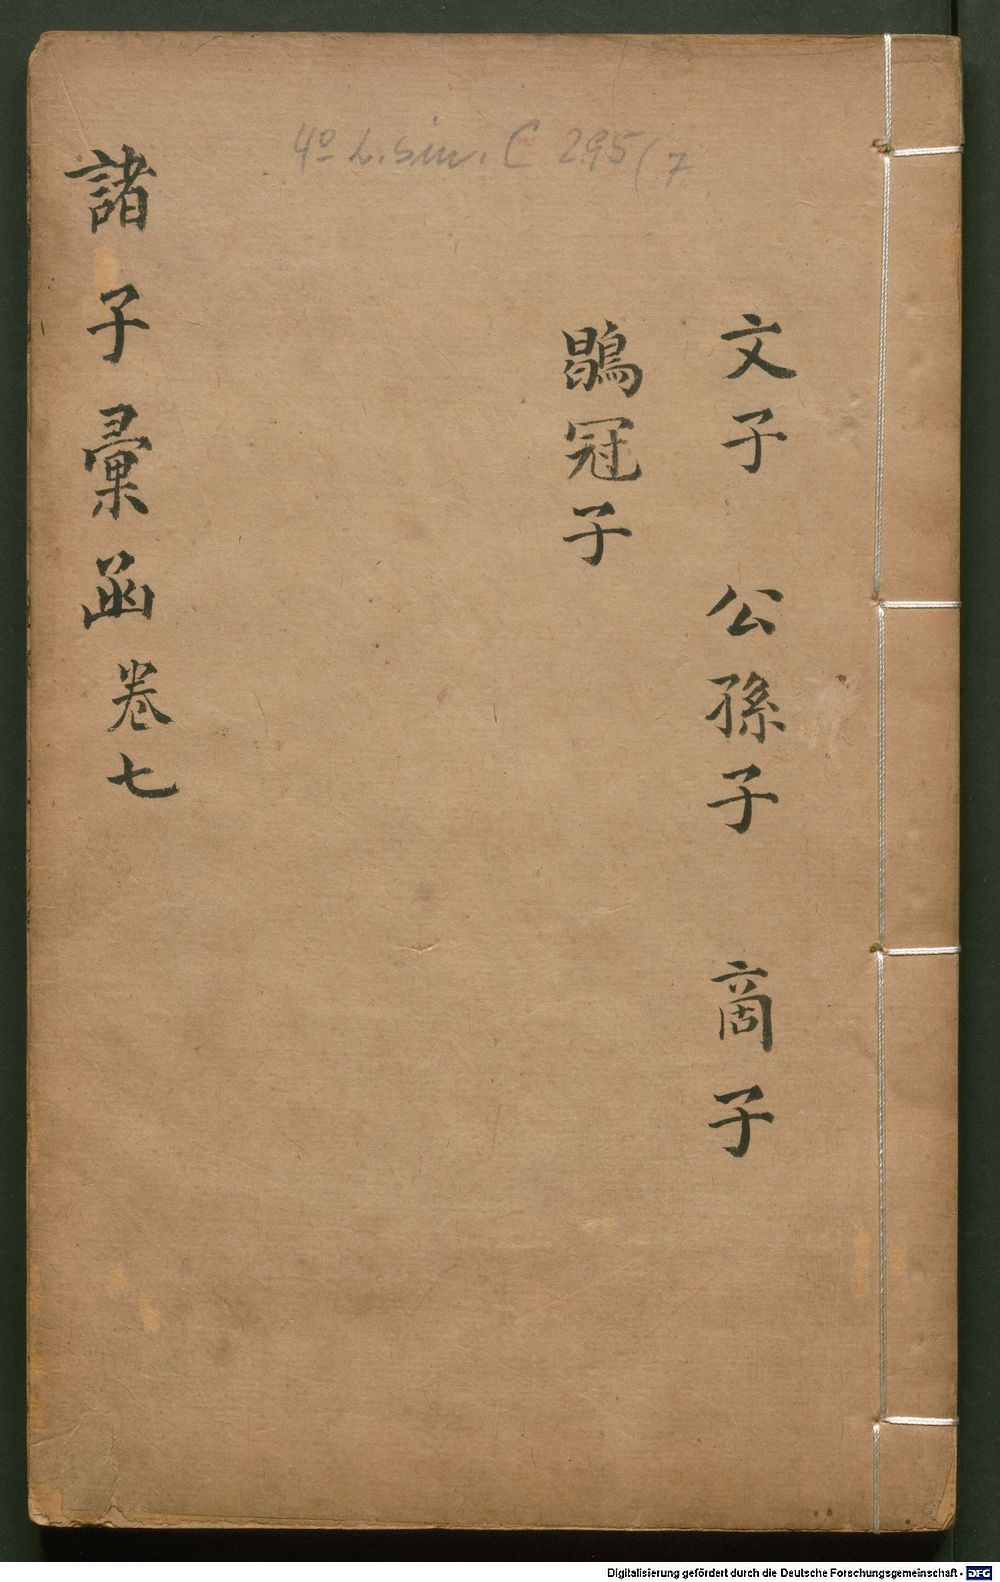 4º L. sin. C 295(7
文子 公孫子 商子
鶡冠子
諸子彙函 卷七
Digitalisierung gefördert durch die Deutsche Forschungsgemeinschaft - DFG